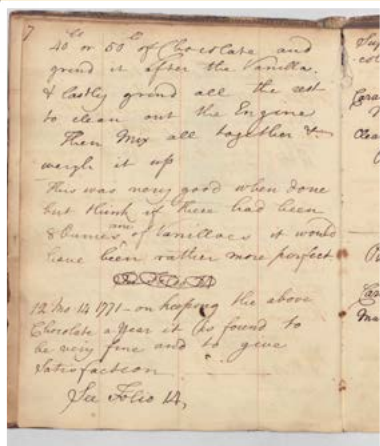 7
40 lb or 50 lb of Chocolate and
grind it after the Vanilla.
& lastly grind all the rest
to clean out the Engine
Then Mix all together &
weigh it up
This was very good when done
but think if there had been
8 ounces more of Vanilloes it would
have been rather more perfect
12 Mo 14 1771 - on keeping the above
Chocolate a Year it is found to
be very fine and to give
Satisfaction
See Folio 14,
Cara
Clea